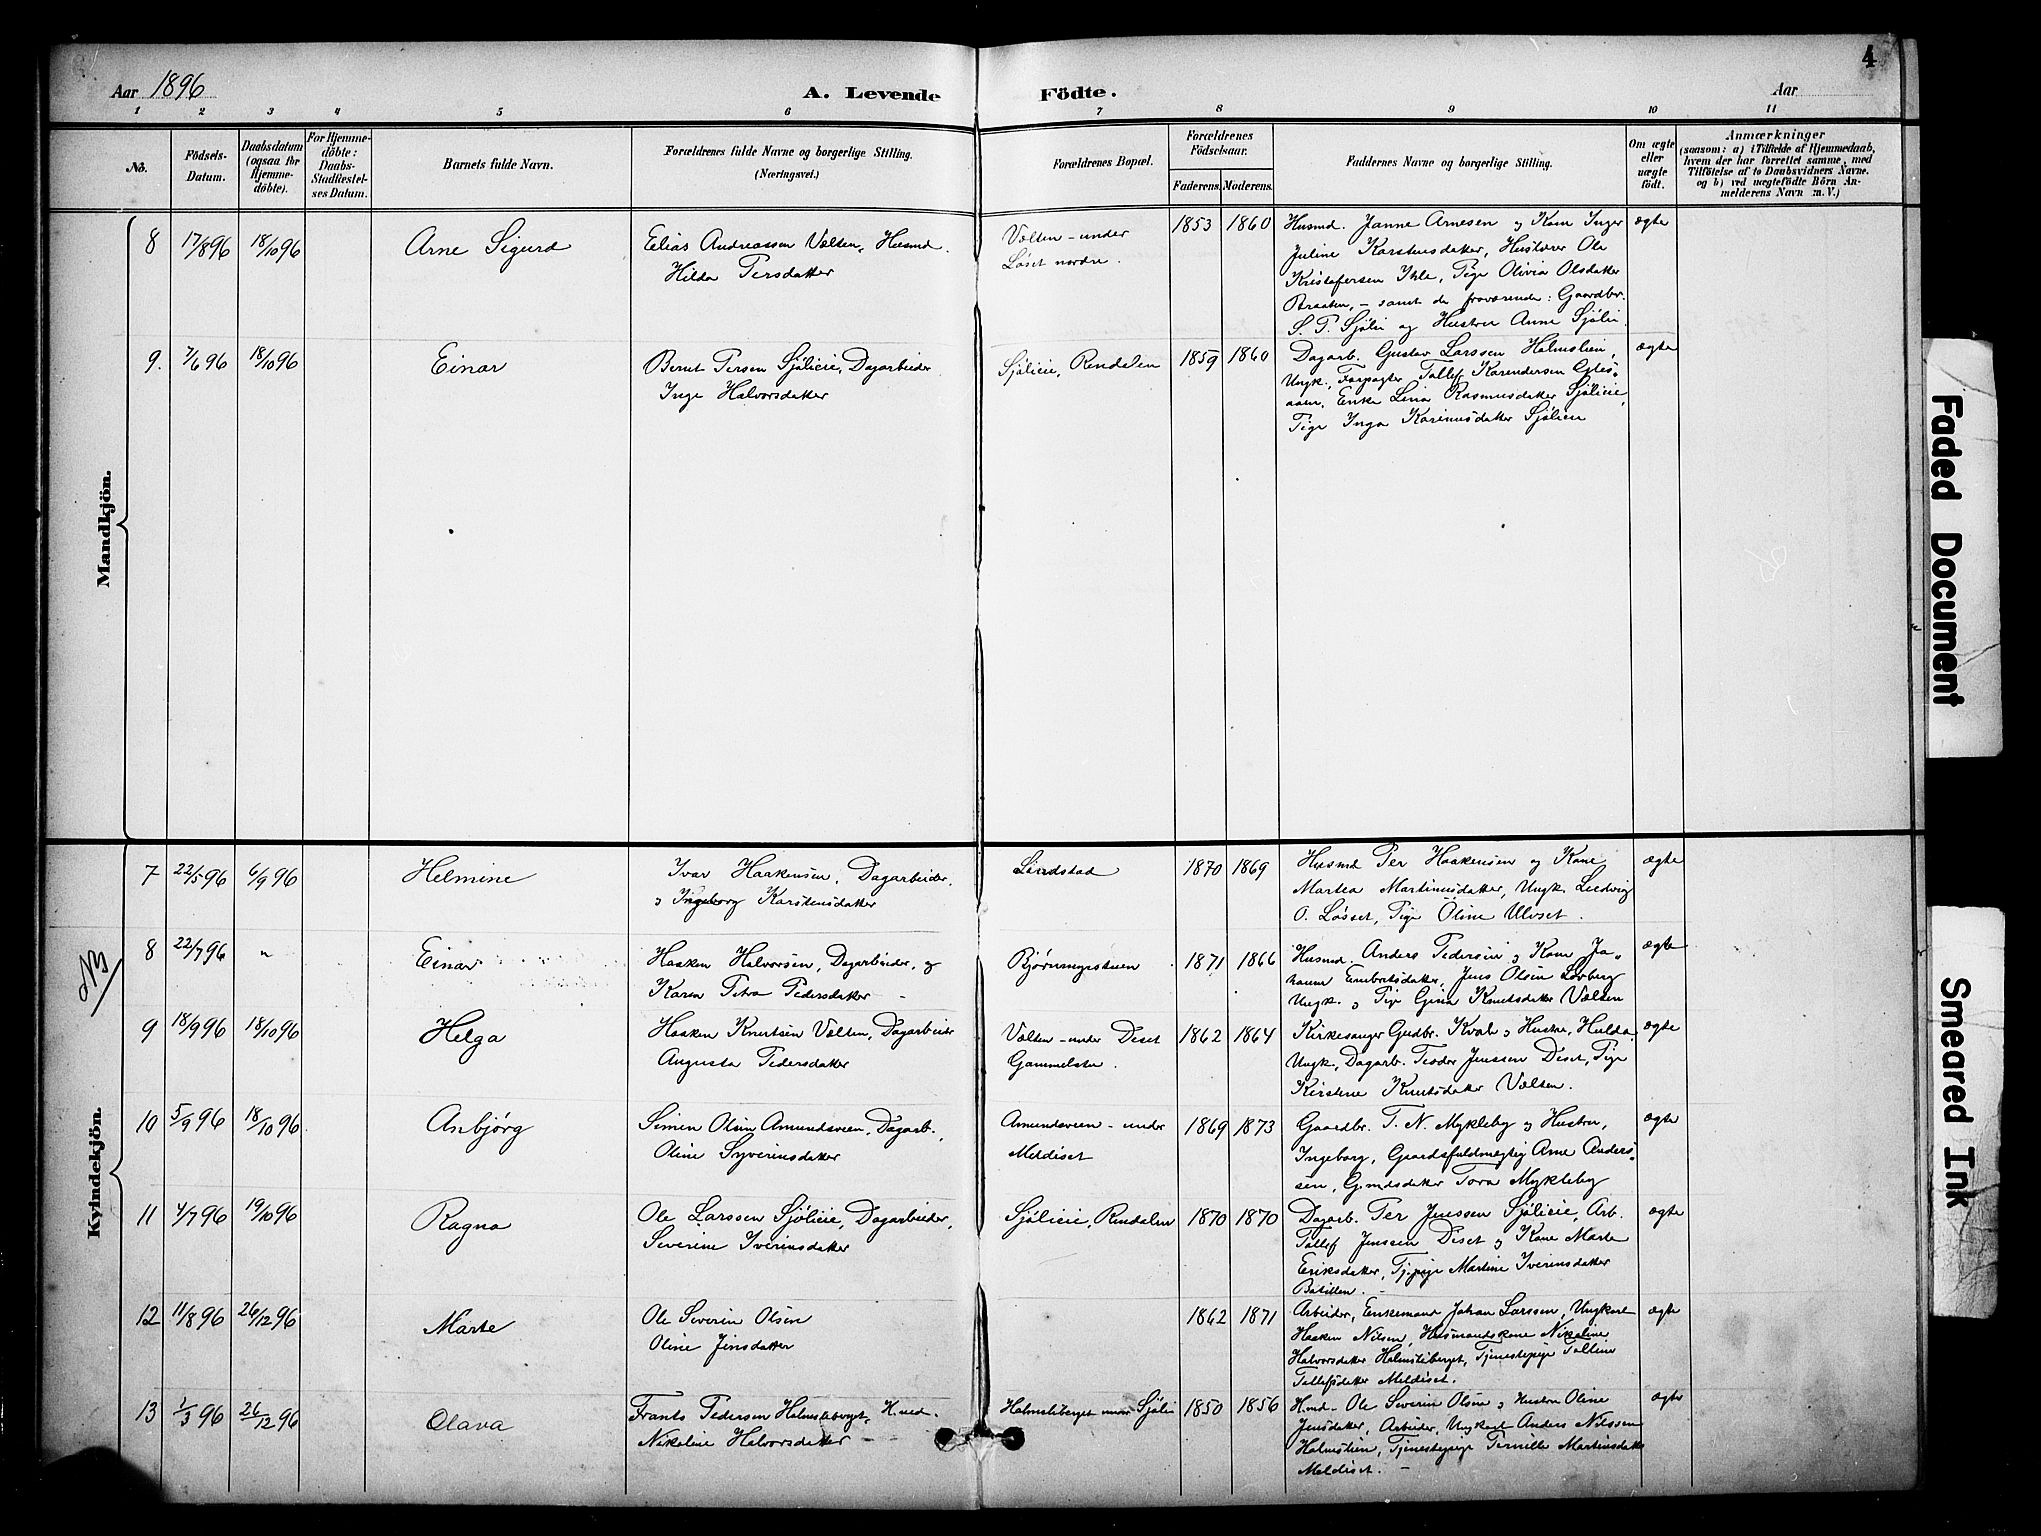 4
Aar 1896
A. Levende
Födte.
Aar
1 2 3 4 5 6 7 8 9 10 11
No.
Födsels-
Datum.
Daabsdatum
(ogsaa for
Hjemme-
döbte).
For Hjemme-
döbte:
Daabs-
Stadfæstel-
ses Datum.
Barnets fulde Navn.
Forældrenes fulde Navne og borgerlige Stilling.
(Næringsvei.)
Forældrenes Bopæl.
Forældrenes
Födselsaar.
Faderens.
Moderens.
Faddernes Navne og borgerlige Stilling.
Om ægte
eller
uægte
födt.
Anmærkninger
(saasom: a) i Tilfælde af Hjemmedaab,
hvem der har forrettet samme, med
Tilföielse af to Daabsvidners Navne.
og b) ved uægtefödte Börn An-
melderens Navn m. V.)
Mandkjön.
8 17/8 96 18/10 96 Arne Sigurd
Elias Andreassen Vælten, Husmd.
Hilda Persdatter
Vælten - under
Løset nordre.
1853 1860
Husmd. Janne Arnesen og Kone Inger
Juline Karstensdatter, Huslærer Ole
Kristofersen Ihle, Pige Olivia Olsdatter
Braaten, - samt de fraværende: Gaardbr.
S. P. Sjøli og Hustru Anne Sjøli.
ægte
9. 7/6 96 18/10 96 Einar
Bernt Persen Sjøliie, Dagarbeider
Inge Halvorsdatter
Sjøliie, Rendalen
1859 1860
Dagarb. Gustav Larssen Holmslien,
Ungk., Forpagter Tollef Karendersen
Enke Lina Rasmusdatter Sjøliie,
Pige Inga Karinusdatter Sjøliie
ægte
Kvindekjön.
NB
7 22/5 96 6/9 96 Helmine
Ivar Haakensen, Dagarbeider,
Ingeborg Karstensdatter
Lindstad
1870 1869
Husmd Per Haakensen og Kone
Martea Martinusdatter, Ungk. Ludvig
O. Løsset, Pige Oline Ulvset.
ægte
8 22/7 96 " Einar
Haaken Halvorsen, Dagarbeider, og
Karen Petra Pedersdatter -
Bjørnmyrstuen
1871 1866
Husmd. Anders Pedersen og Kone Jo-
hanne Embretsdatter, Jens Olsen Løvberg
Ungk. og Pige Gina Knutsdatter Vælten
ægte
9 18/9 96 18/10 96 Helga
Haaken Knutsen Vælten, Dagarbeider
Augusta Pedersdatter
Vælten - under Diset
Gammelstu.
1862 1864
Kirkesanger Gudbr. Kvale og Hustru, Hulda,
Ungk., Dagarb. Teodor Jenssen Diset, Pige
Kirstine Knutsdatter Vælten.
ægte
10 5/9 96 18/10 96 Anbjørg
Simen Olsen Amundsveen, Dagarb.,
Oline Syverinsdatter
Amundsveen - under
Meldiset
1869 1873
Gaardbr. T. N. Mykleby og Hustru,
Ingeborg, Gaardsfuldmegtig Arne Anders-
sen, Gmdsdatter Tora Mykleby
ægte
11 4/7 96 19/10 96 Ragna
Ole Larssen Sjøliie, Dagarbeider,
Severine Iverinsdatter
Sjøliie, Rendalen
1870 1870
Dagarb. Per Jenssen Sjøliie, Arb.
Tollef Jenssen Diset og Kone Marte
Eriksdatter, Tj.pige Martine Iverinsdatter
ægte
12 11/8 96 26/12 96 Marte
Ole Severin Olsen
Oline Jensdatter
1862 1871
Arbeider, Enkemand Johan Larssen, Ungkarl
Haaken Nilsen, Husmandskone Nikoline
Halvorsdatter Holmsliberget, Tjenestepige Tolline
Tollefsdatter Meldiset.
ægte
13 1/3 96 26/12 96 Olava
Frants Pedersen Holmsleberget, H.md.
Nikoline Halvorsdatter
Holmsleberget under Sjøli
1850 1856
H.md. Ole Severin Olsen og Hustru Oline
Jensdatter, Arbeider, Ungkarl Anders Nilssen
Holmslien, Tjenestepige Pernille Martinsdatter
Meldiset. -
ægte
Faded Document
Smeared Ink